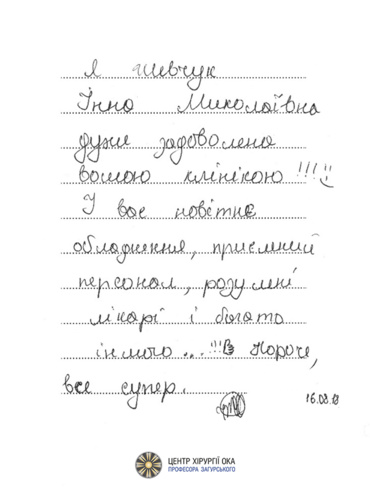 Я Шевчук
Інна Миколаївна
дуже задоволена
вашою клінікою!!! :)
У вас новітнє
обладнення, приємний
персонал, розумні
лікарі і багато
іншого...!!! Короче,
все супер.
16.08.18
ЦЕНТР ХІРУРГІЇ ОКА
ПРОФЕСОРА ЗАГУРСЬКОГО